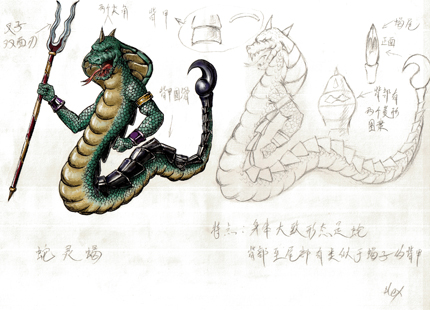 叉子
双面刃
两个犬齿
背甲
背甲图解
蝎尾
正面
背部有
两个菱形
图案
蛇灵蝎
特点：身体大致形态是蛇
背部至尾部有类似于蝎子的背甲